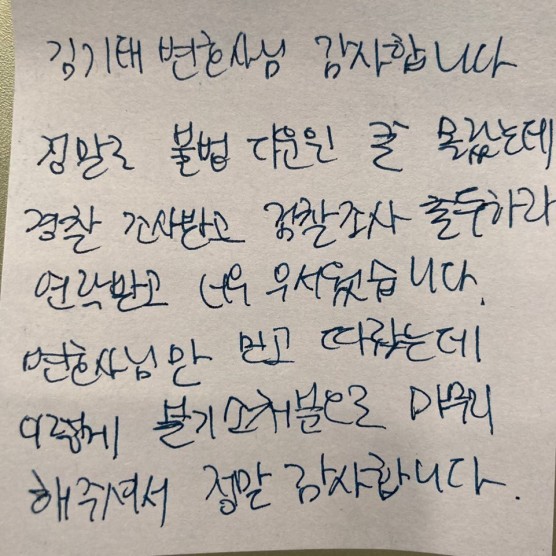 김기태 변호사님 감사합니다
정말로 불법 다운인 줄 몰랐는데
경찰 조사받고 검찰조사 출두하라
연락받고 너무 무서웠습니다.
변호사님만 믿고 따랐는데
이렇게 불기소처분으로 마무리
해주셔서 정말 감사합니다.